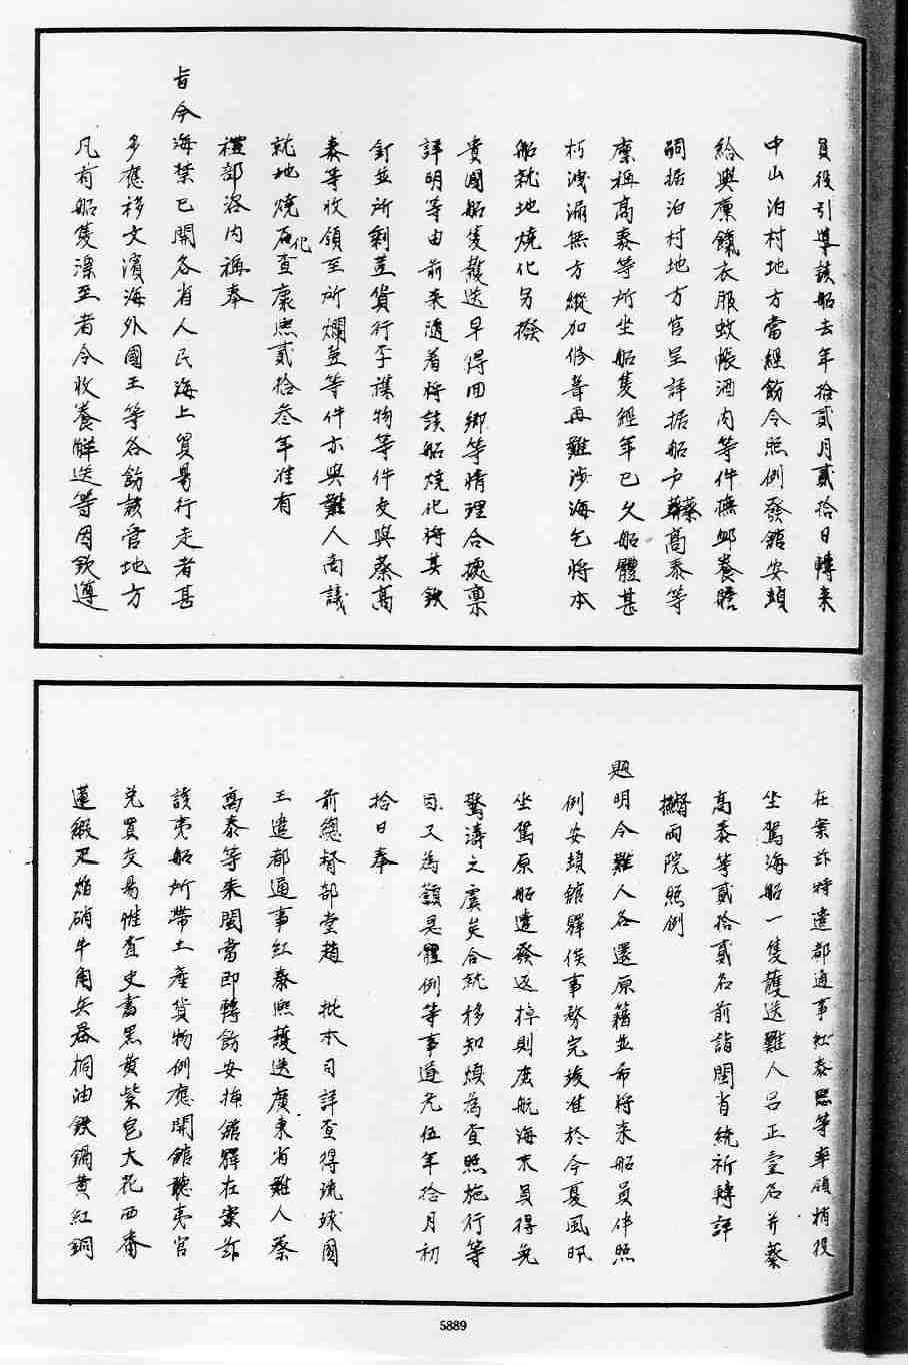 員役引導該船去年拾貳月貳拾日轉來
中山泊村地方當經飭令照例發館安頓
給與廩餼衣服蚊帳酒肉等件撫卹養贍
嗣据泊村地方官呈詳据船戶蔡高泰等
稟稱高泰等所坐船隻經年已久船體甚
朽洩漏無方縱加修葺再難涉海乞將本
船就地燒化另撥
貴國船隻護送早得回鄉等情理合摠稟
詳明等由前來隨着將該船燒化將其鉄
釘並所剩荳貨行李護物等件交與蔡高
泰等收領至所爛荳等件亦與難人商議
就地燒化查康熙貳拾叁年准有
禮部洛內稱奉
旨今海禁已開各省人民海上貿易行走者甚
多應移文濱海外國王等各飭該管地方
凡有船隻漂至者令收養解送等因欽遵
在案茲特遣都通事紅泰熙等率領梢役
坐駕海船一隻護送難人呂正壹名并蔡
高泰等貳拾貳名前詣閩省統祈轉詳
督撫兩院照例
題明令難人各還原籍並希將來船員伴照
例安頓館驛俟事務完竣准於今夏風汛
坐駕原船遣發返棹則庶航海末員得免
驚濤之虞矣合就移知煩為查照施行等
因又為顴是體例等事道光伍年拾月初
拾日奉
前總督部堂趙 批本司詳查得琉球國
王遣都通事紅泰熙護送廣東省難人蔡
高泰等來閩當即轉飭安揷館驛在案茲
該夷船所帶土產貨物例應開館聽夷官
兌買交易惟查史書黑黃紫皂大花西番
蓮緞疋焰硝牛角兵器桐油鉄鍋黃紅銅
5889